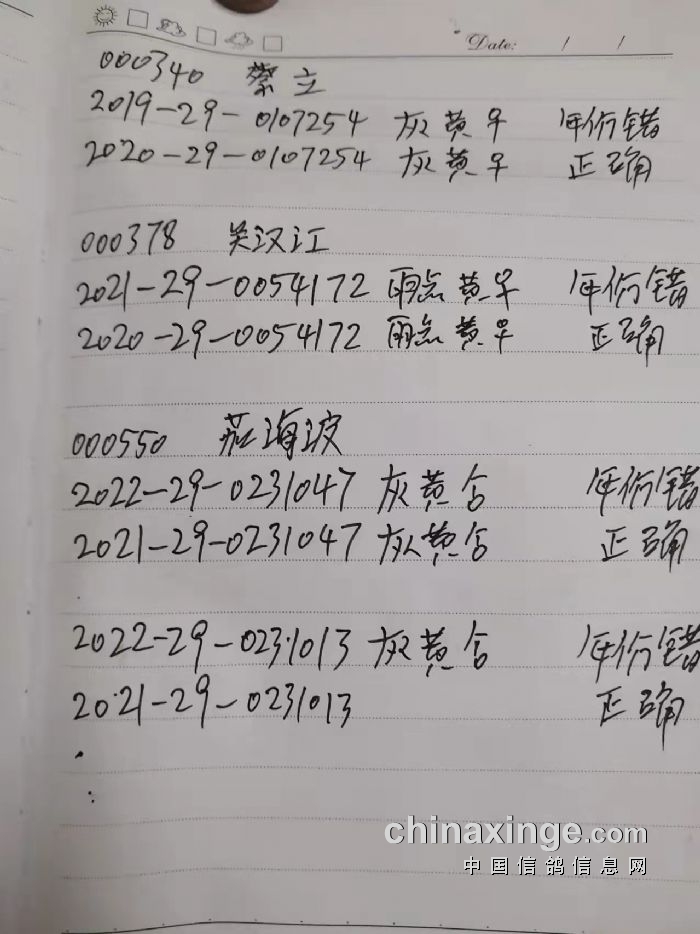 Date: / /
000340 蔡立
2019-29-0107254 灰黄早 年份错
2020-29-0107254 灰黄早 正确
000378 吴汉江
2021-29-0054172 雨点黄早 年份错
2020-29-0054172 雨点黄早 正确
000550 茹海波
2022-29-0231047 灰黄合 年份错
2021-29-0231047 灰黄合 正确
2022-29-0231013 灰黄合 年份错
2021-29-0231013 正确
chinaxinge.com
中国信鸽信息网